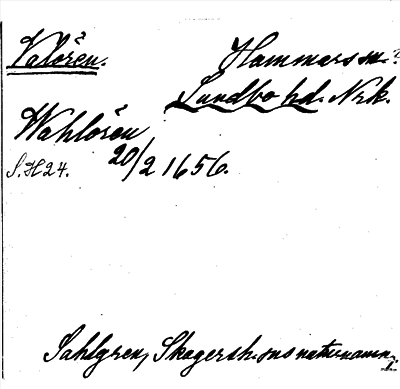 Valören. Hammars sn.
Sundbo hd. Nrk.
Wahlören
S.H 24. 20/2 1656.
Sahlgren, Skagersh. sns naturnamn.